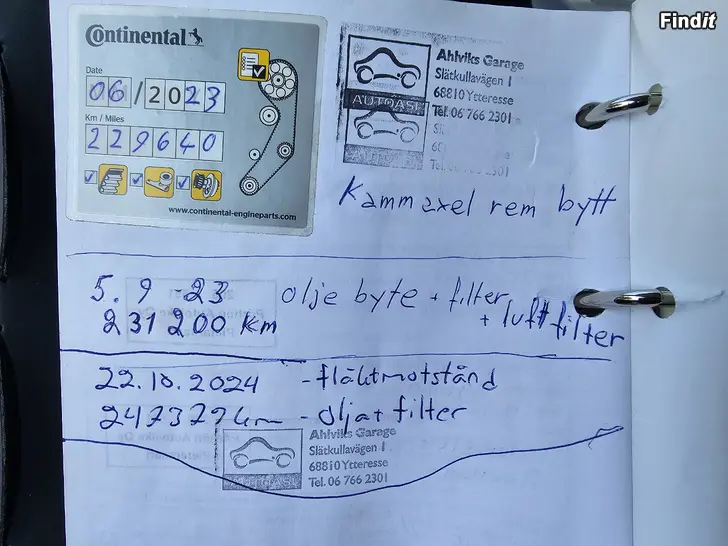 Findit
Continental
Date
06/2023
Km / Miles
229640
www.continental-engineparts.com
Ahlviks Garage
Slätkullavägen 1
68810 Ytteresse
AUTOASI
Tel. 06 766 2301
Kammaxel rem bytt
5. 9 -23 olje byte + filter
231 200 Km + luftfilter
22.10.2024 - fläktmotstånd
247379 km - olja + filter
Ahlviks Garage
Slätkullavägen 1
68810 Ytteresse
AUTOASI
Tel. 06 766 2301